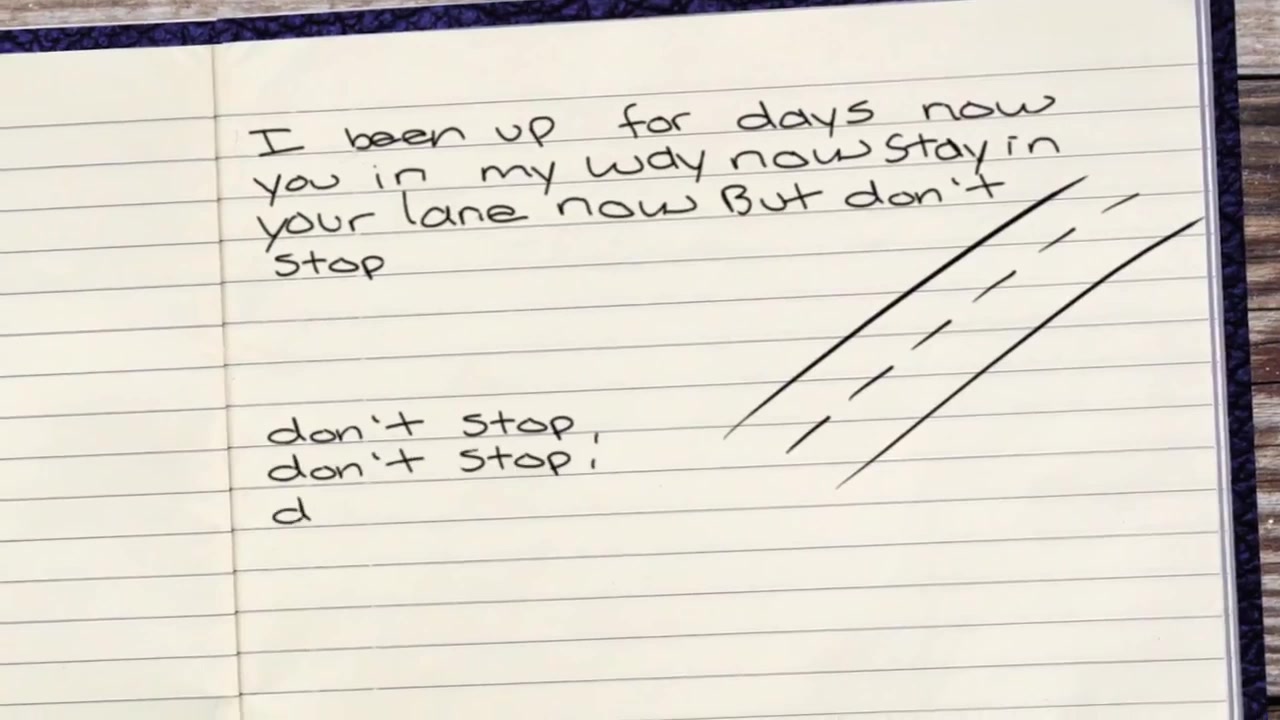 I been up for days now
you in my way now stay in
your lane now But don't
stop
don't stop,
don't stop,
d